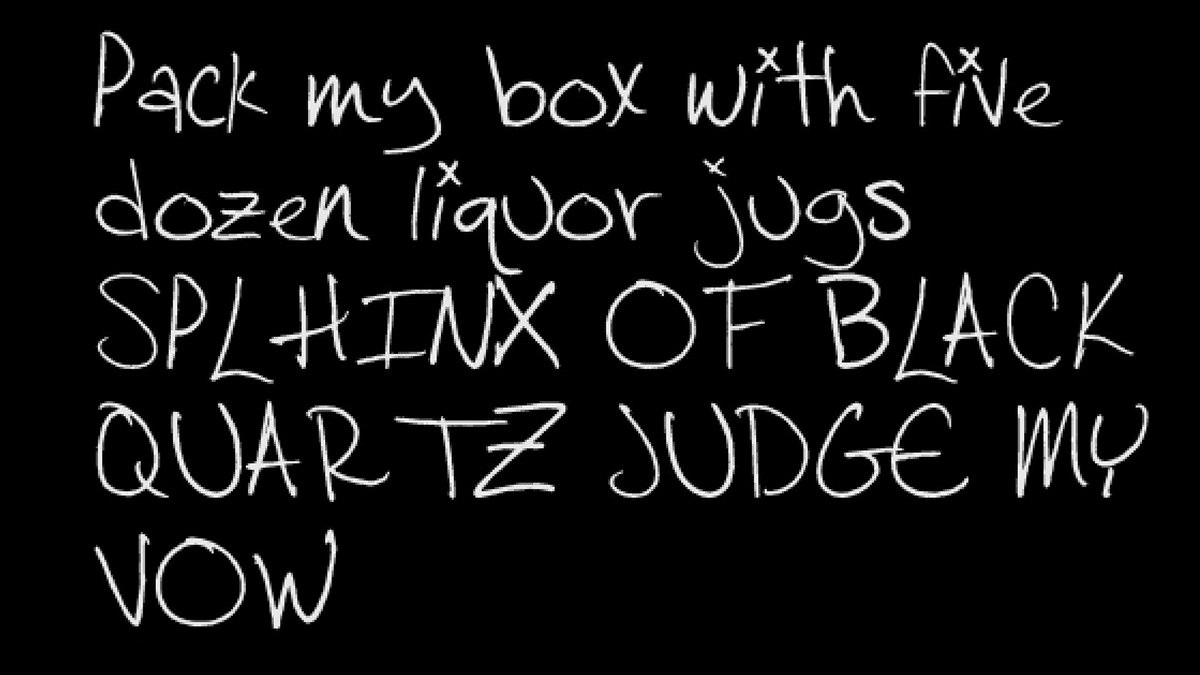 Pack my box with five
dozen liquor jugs
SPLHINX OF BLACK
QUARTZ JUDGE MY
VOW